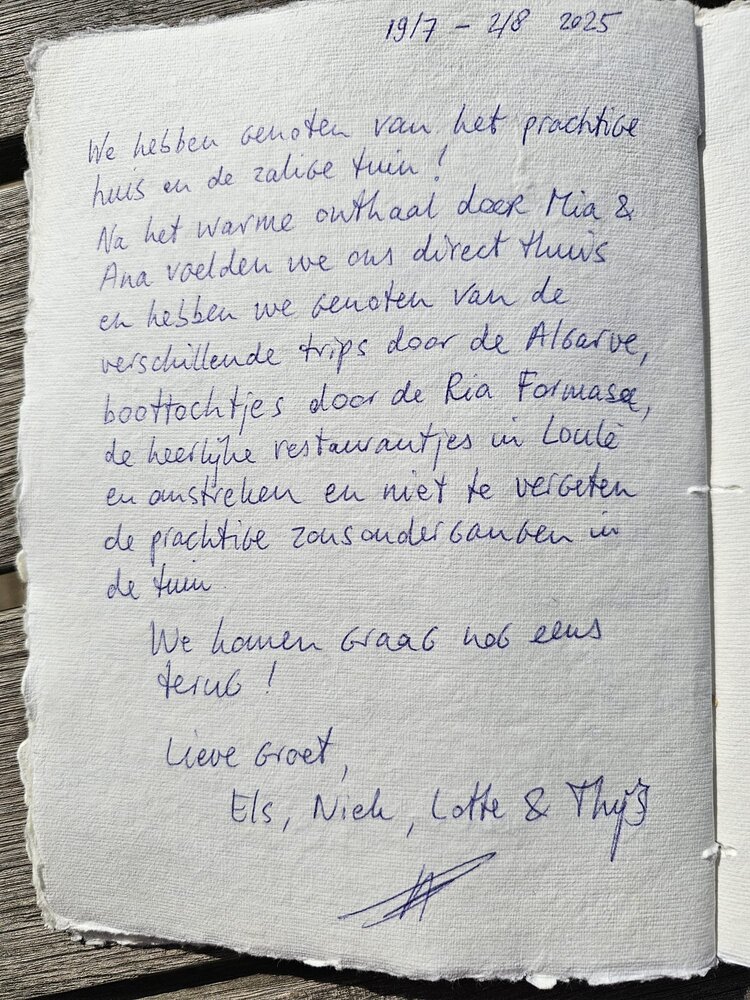 19/7 - 2/8 2025
We hebben genoten van het prachtige
huis en de zalige tuin!
Na het warme onthaal door Mia &
Ana voelden we ons direct thuis
en hebben we genoten van de
verschillende trips door de Algarve,
boottochtjes door de Ria Formosa,
de heerlijke restaurantjes in Loulé
en omstreken en niet te vergeten
de prachtige zonsondergangen in
de tuin.
We komen graag nog eens
terug!
Lieve groet,
Els, Niek, Lotte & Thijs